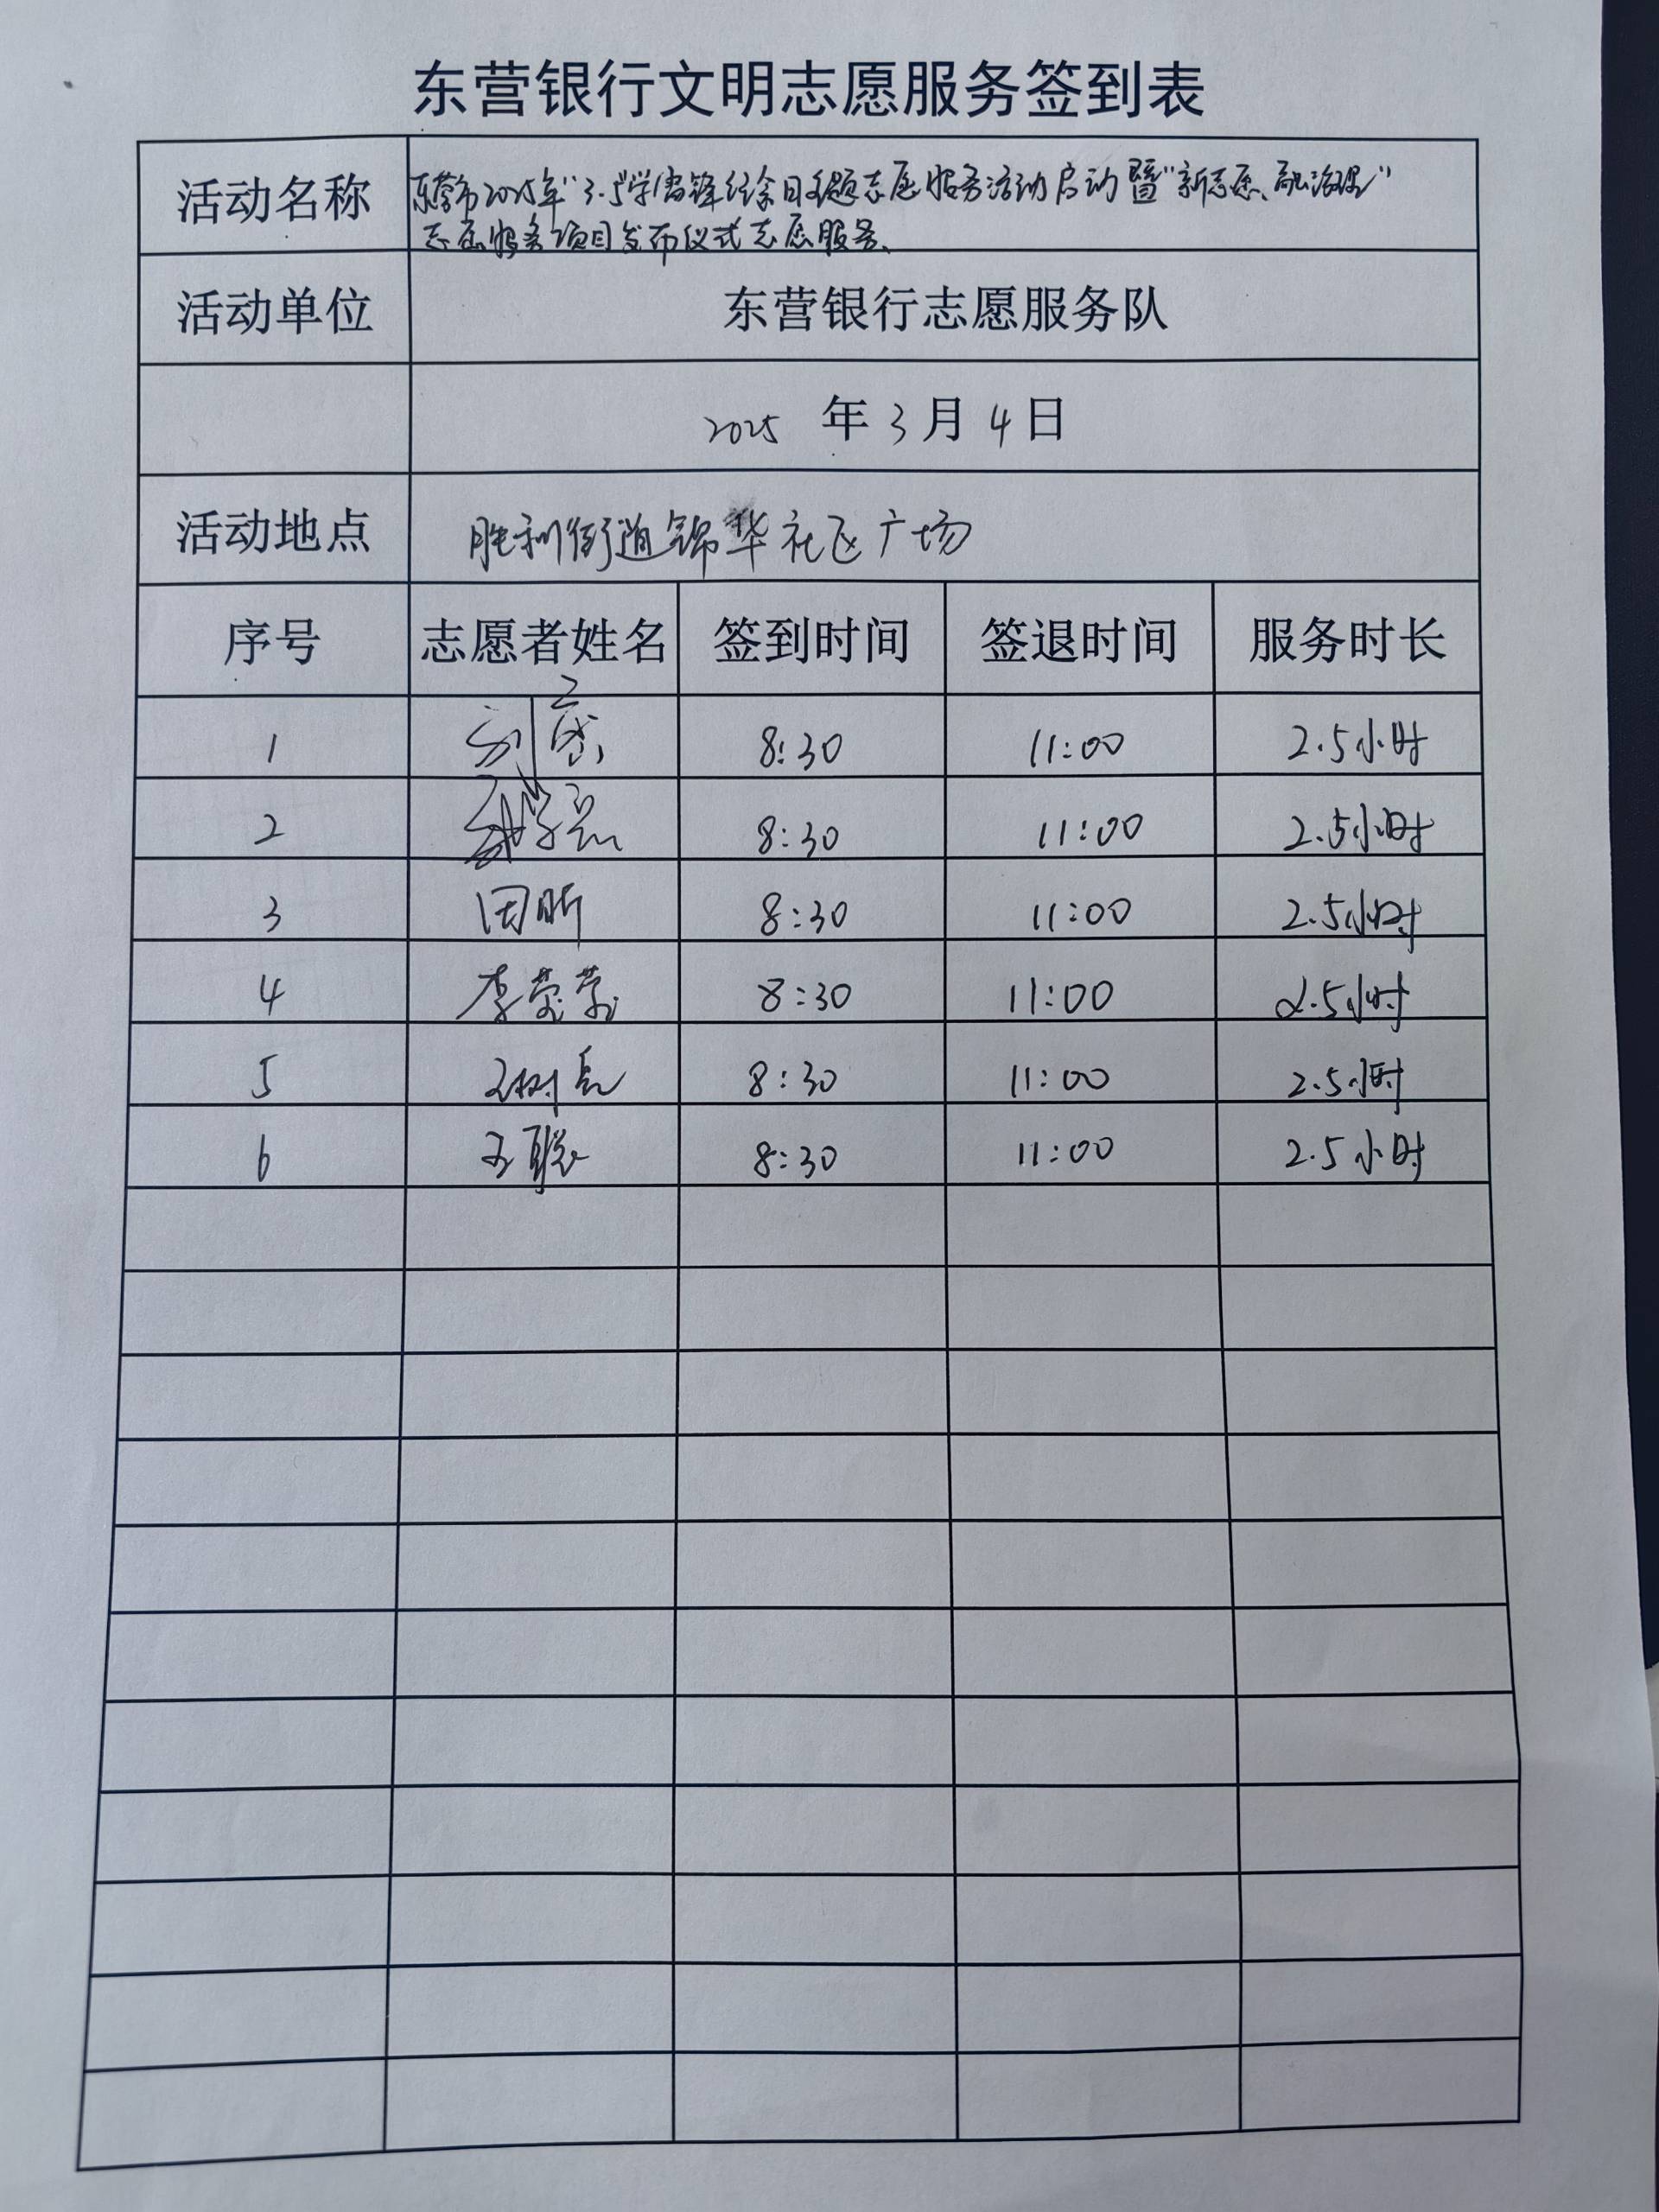 东营银行文明志愿服务签到表
活动名称 东营市2025年"3·5"学雷锋纪念日主题志愿服务活动启动暨"新志愿、融治理"
志愿服务项目发布仪式志愿服务、
活动单位 东营银行志愿服务队
2025 年 3 月 4 日
活动地点 胜利街道锦华社区广场
序号 志愿者姓名 签到时间 签退时间 服务时长
1 刘 8:30 11:00 2.5小时
2 8:30 11:00 2.5小时
3 田昕 8:30 11:00 2.5小时
4 李莹莹 8:30 11:00 2.5小时
5 王树亮 8:30 11:00 2.5小时
6 王聪 8:30 11:00 2.5小时